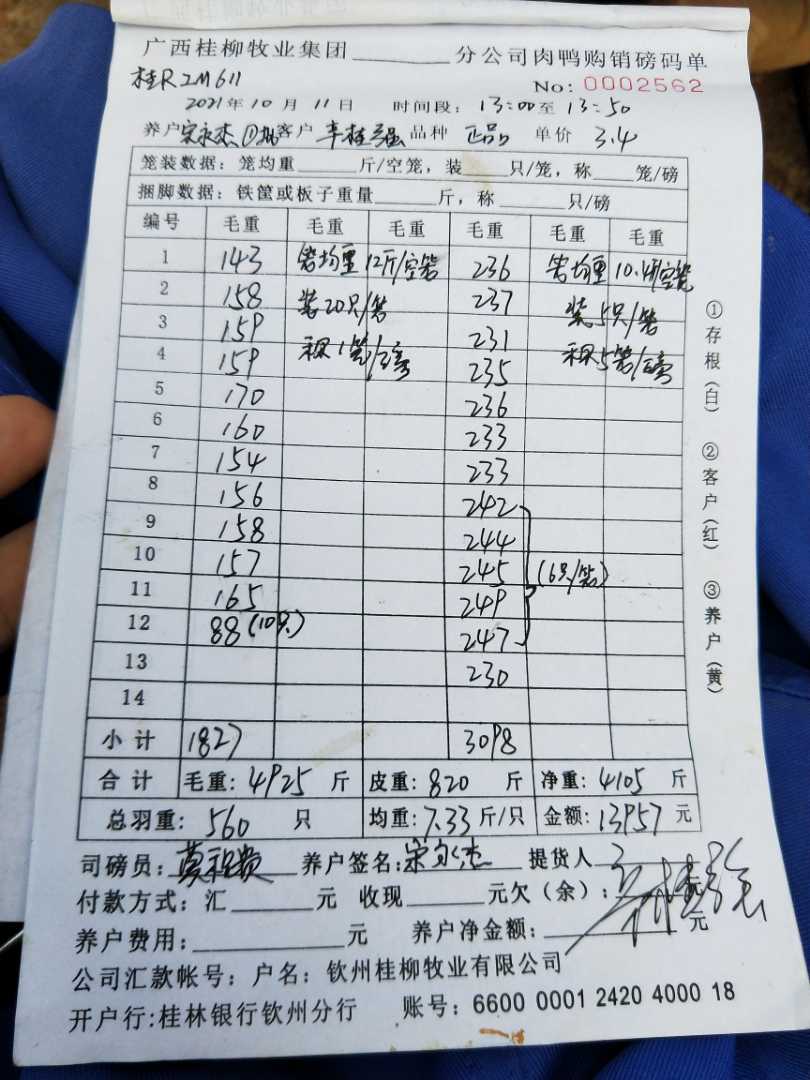 广西桂柳牧业集团________分公司肉鸭购销磅码单
桂R2M611
No: 0002562
2021年10月11日 时间段: 13:00至13:50
养户宋永杰 客户 李桂强 品种 正品 单价 3.4
笼装数据: 笼均重____斤/空笼, 装____只/笼, 称____笼/磅
捆脚数据: 铁筐或板子重量____斤, 称____只/磅
编号 毛重 毛重 毛重 毛重 毛重 毛重
1 143 笼均重12斤/空笼 236 笼均重10.4斤/空笼
2 158 装20只/笼 237 装5只/笼
3 159 231
4 159 称1笼/磅 235 称5笼/磅
5 170 236
6 160 233
7 154 233
8 156 242
9 158 244
10 157 245 (6只/笼)
11 165 249
12 88(10只) 247
13 230
14
小计 1827 3098
合计 毛重: 4925 斤 皮重: 820 斤 净重: 4105 斤
总羽重: 560 只 均重: 7.33 斤/只 金额: 13957 元
司磅员: 养户签名: 宋永杰 提货人
付款方式: 汇____元 收现____元欠(余): ____元
养户费用: ____元 养户净金额: ____元
公司汇款帐号: 户名: 钦州桂柳牧业有限公司
开户行:桂林银行钦州分行 账号: 6600 0001 2420 4000 18
①存根(白) ②客户(红) ③养户(黄)